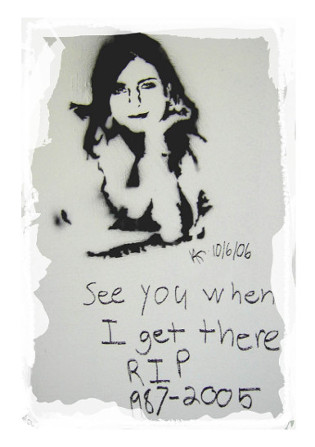 10/6/06
See you when
I get there
RIP
1987-2005